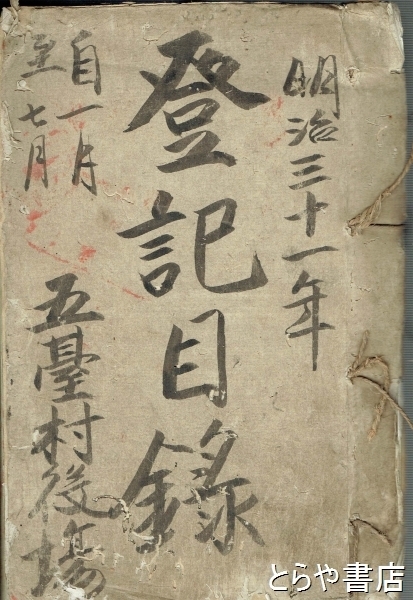 明治三十一年
登記目録
自一月
至七月
五臺村役場
とらや書店